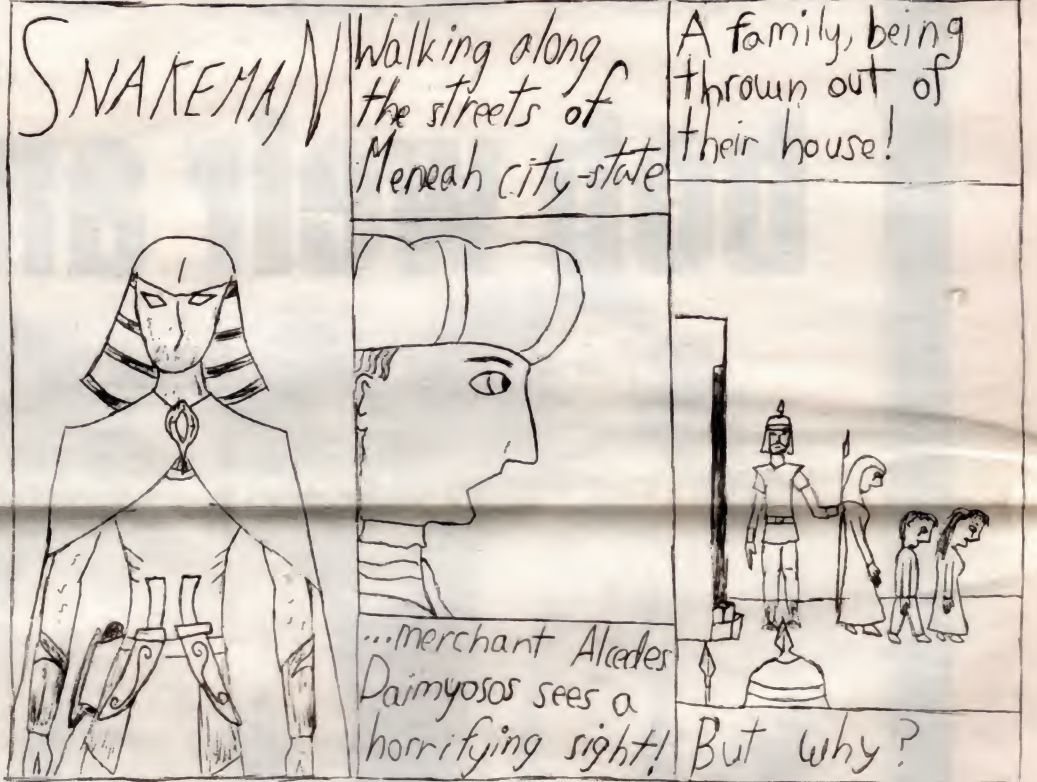 SNAKEMAN
Walking along
the streets of
Meneah city-state
...merchant Alcedes
Daimyosos sees a
horrifying sight!
A family, being
thrown out of
their house!
But why?